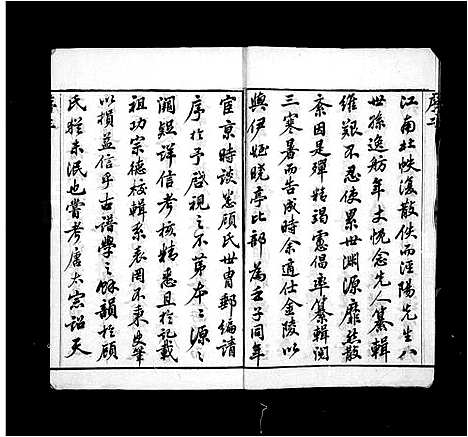 序三
江南牡帙復散佚而涇陽先生八
世孫逸舫年丈悅念先人纂輯
維艱不忍使累世淵源靡然散
紊因是殫精竭慮倡率纂輯閱
三寒暑而告成時余適仕金陵以
與伊姪曉亭比部為壬子同年
宦京時談悉顧氏世冑郵編請
序於予啓視之不第本本源源
闕疑詳信考核精悉且於記載
祖功宗德校輯系表罔不秉史筆
以損益信乎古譜學之餘韻於顧
氏猶未泯也嘗考唐太宗詔天